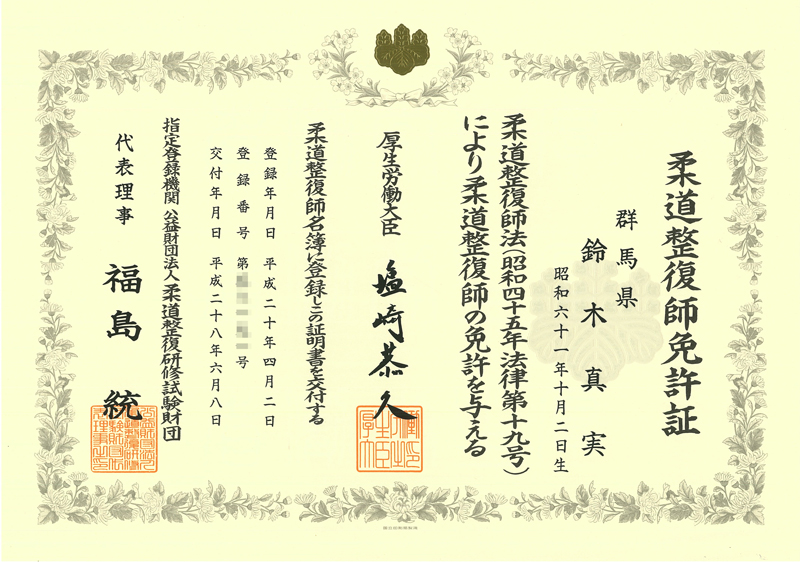 柔道整復師免許証
群馬県
鈴木真実
昭和六十一年十月二日生
柔道整復師法(昭和四十五年法律第十九号)
により柔道整復師の免許を与える
厚生労働大臣 塩崎恭久
柔道整復師名簿に登録しこの証明書を交付する
登録年月日 平成二十年四月二日
登録番号 第 号
交付年月日 平成二十八年六月八日
指定登録機関 公益財団法人柔道整復研修試験財団
代表理事 福島統